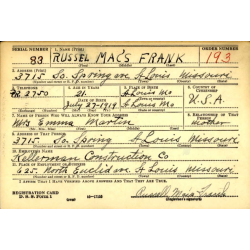 SERIAL NUMBER 1. NAME (Print) ORDER NUMBER
83 RUSSEL MAC'S FRANK 193
2. ADDRESS (Print)
3715 So. Spring ave St Louis Missouri
3. TELEPHONE 4. AGE IN YEARS 5. PLACE OF BIRTH 6. COUNTRY OF CITIZENSHIP
PR. 2750 21. St Louis Mo
DATE OF BIRTH
July-27-1919 U.S.A.
7. NAME OF PERSON WHO WILL ALWAYS KNOW YOUR ADDRESS 8. RELATIONSHIP OF THAT PERSON
Mrs Emma Martin mother
9. ADDRESS OF THAT PERSON
3715 So. Spring St Louis Missouri
10. EMPLOYER'S NAME
Kellerman Construction Co
11. PLACE OF EMPLOYMENT OR BUSINESS
625 North Euclid ave St Louis Missouri
I AFFIRM THAT I HAVE VERIFIED ABOVE ANSWERS AND THAT THEY ARE TRUE.
REGISTRATION CARD
D. S. S. FORM 1
(Registrant's signature)